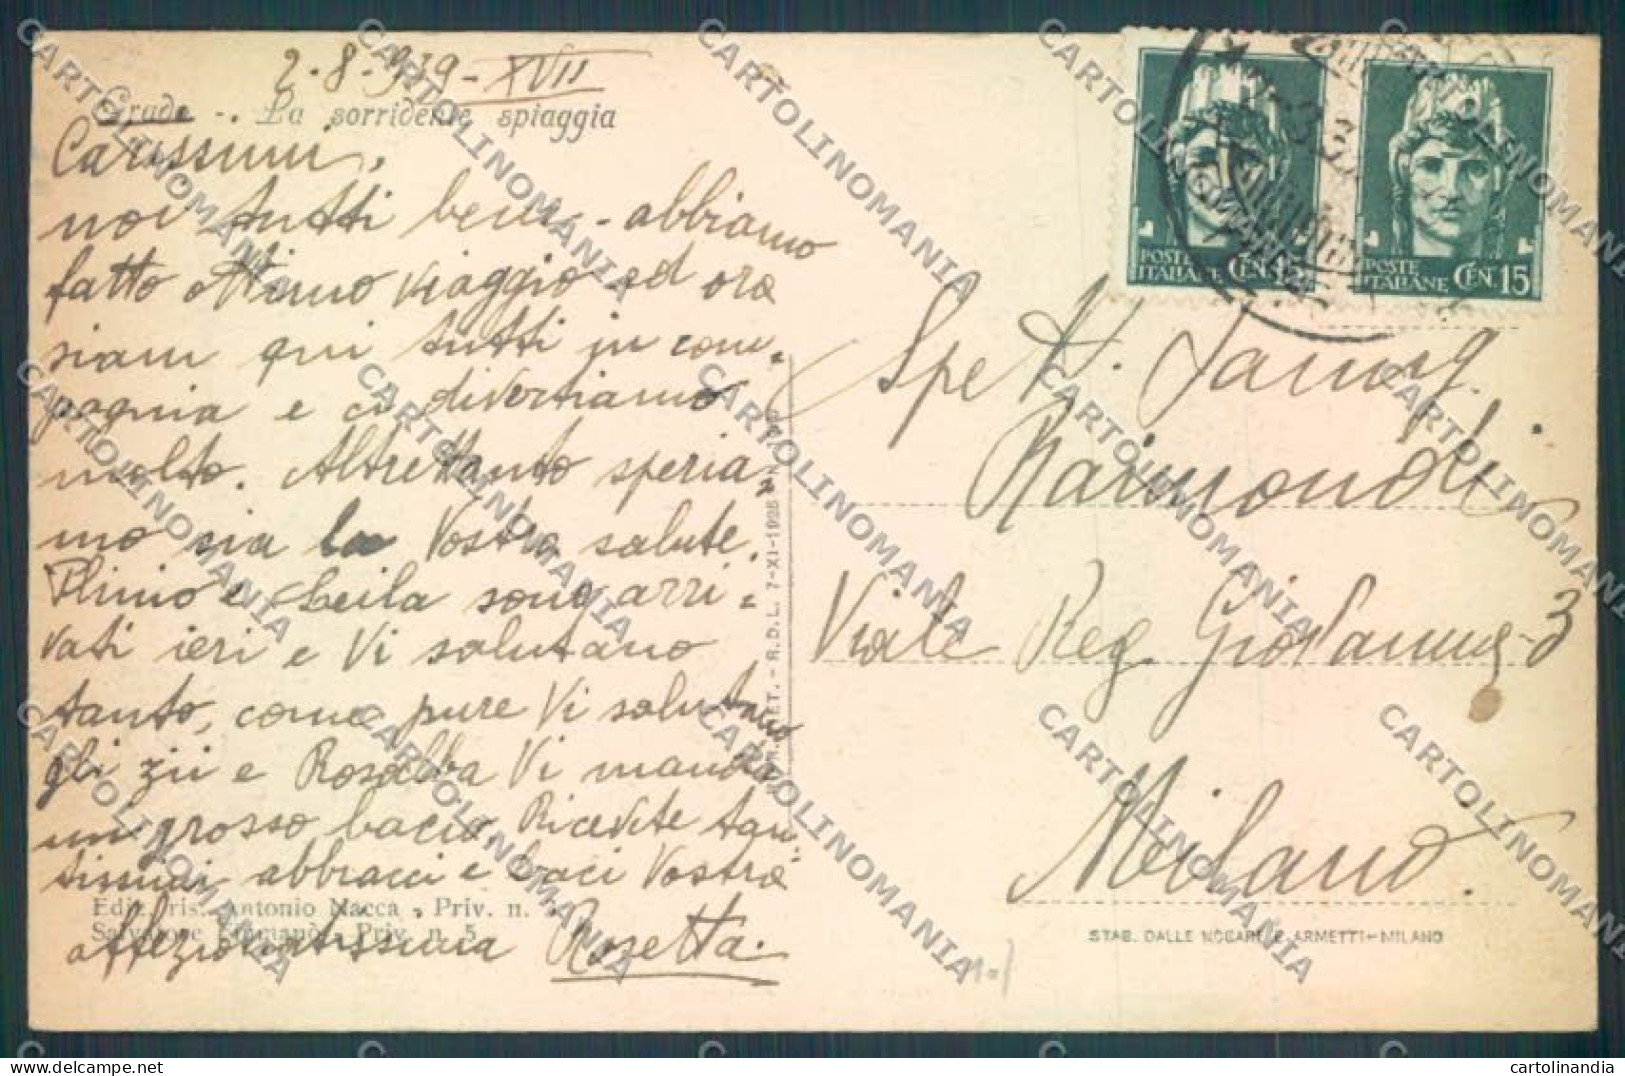 2-8-939-XVII
Grado - La sorridente spiaggia
Carissimi,
noi tutti bene - abbiamo
fatto ottimo viaggio ed ora
siam qui tutti in com=
pagnia e ci divertiamo
molto. Altrettanto speria=
mo sia la Vostra salute.
Plinio e Leila sono arri=
vati ieri e Vi salutano
tanto, come pure Vi salutano
gli zii e Rosalba Vi manda
un grosso bacio. Ricevete tan
tissimi abbracci e baci Vostra
affezionatissima Rosetta.
Ediz. ris. Antonio Macca - Priv. n.
Priv. n. 5
R.D.L. 7-XI-1925
POSTE ITALIANE CEN. 15
POSTE ITALIANE CEN. 15
Spett. Famig.
Raimondi
Viale Reg Giovanna-3
Milano.
STAB. DALLE NOGARE E ARMETTI-MILANO
CARTOLINOMANIA
cartolinandia